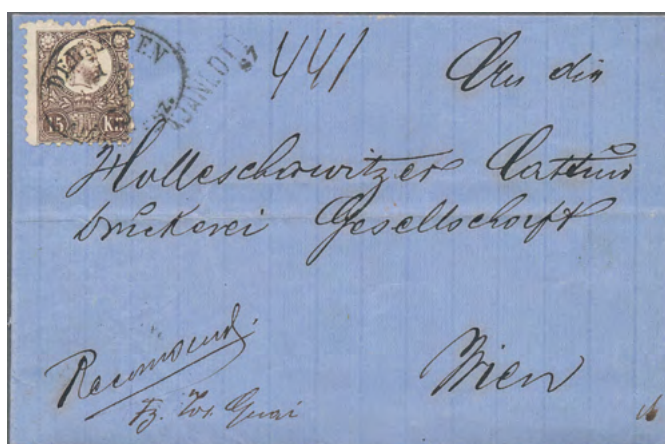 DEBRECZEN
AJÁNLOTT
15 Kr
441
An die
Holleschowitzer Cattun
Druckerei Gesellschaft
Recomand.
Fz. Jos. Quai
Wien